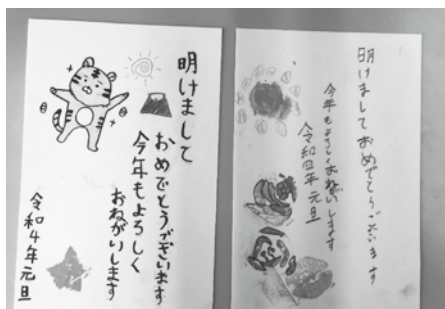 明けまして
おめでとうございます
今年もよろしく
おねがいします
令和4年元旦
明けましておめでとうございます
今年もよろしくおねがいします
令和四年元旦